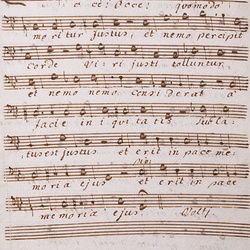 a c: Ecce: quomodo
moritur justus, et nemo percipit
corde Viri justi tolluntur,
et nemo considerat a
facie iniquitatis Subla:
tus est Justus et erit in pace me:
moria ejus et erit in pace
memoria ejus. Volti.